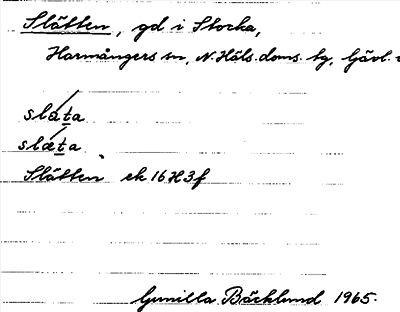 Slätten, gd i Stocka,
Harmångers sn, N. Häls. doms. tg, Gävl.
slata
slæta
Slätten ek 16H3f
Gunilla Bäcklund 1965.